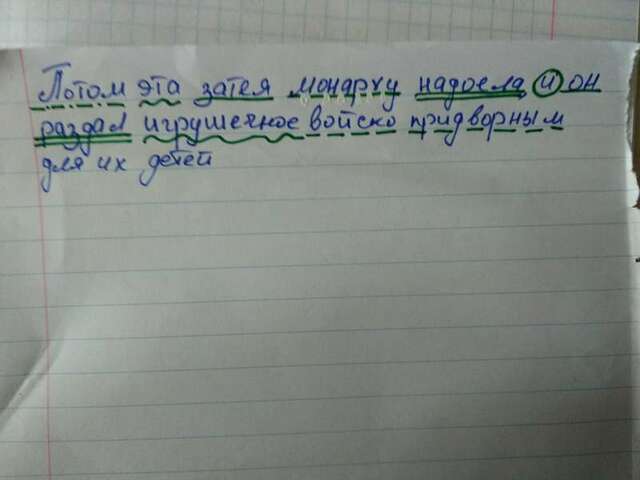 Потом эта затея монарху надоела и он
раздал игрушечное войско придворным
для их детей